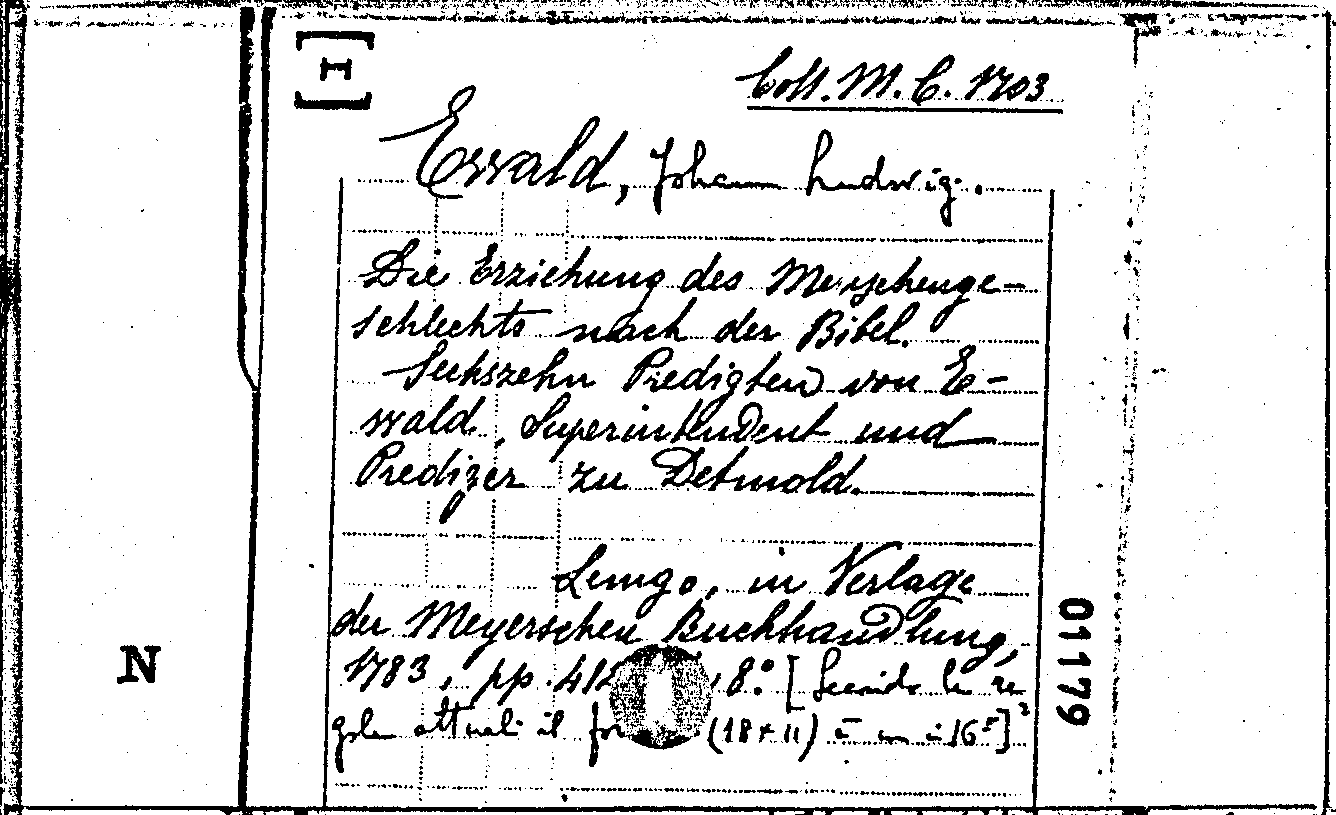 [I]
Coll. M. C. 1703
Ewald, Johann Ludwig.
Die Erziehung des Menschenge-
schlechts nach der Bibel.
Sechszehn Predigten von E-
wald, Superintendent und
Prediger zu Detmold.
Lemgo, in Verlage
der Meyerschen Buchhandlung,
1783, pp. 412, 8.° [Secondo le re
gole attuali il for (18 x 11) è un i-16°]
N
01179